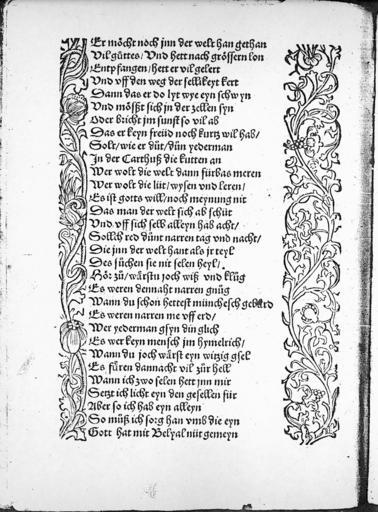 Er möcht noch jnn der welt han gethan
Vil gůttes / Vnd hett nach grössern lon
Entpfangen / hett er vil gelert
Vnd vff den weg der sellikeyt kert
Dann das er do lyt wye eyn schwyn
Vnd mößt sich jn der zellen syn
Oder bricht jm sunst so vil ab
Das er keyn freüd noch kurtz wil hab /
Solt / wie er důt / dün yederman
In der Carthuß die kutten an
Wer wolt die welt dann fürbas meren
Wer wolt die lüt / wysen vnd leren /
Es ist gotts will / noch meynung nit
Das man der welt sich ab schüt
Vnd vff sich selb alleyn hab acht /
Sollch red dünt narren tag vnd nacht /
Die jnn der welt hant als jr teyl
Des süchen sie nit selen heyl / .
Hör zů / wärstu joch wiß vnd klůg
Es weren dennaht narren gnůg
Wann du schon hettest münchesch geberd
Es weren narren me vff erd /
Wer yederman gsyn din glich
Es wer keyn mensch jm hymelrich /
Wann du joch wärst eyn witzig gsel
Es füren dannacht vil zür hell
Wann ich zwo selen hett jnn mir
Setzt ich licht eyn den gesellen für
Aber so ich hab eyn alleyn
So můß ich sorg han vmb die eyn
Gott hat mit Belyal nüt gemeyn